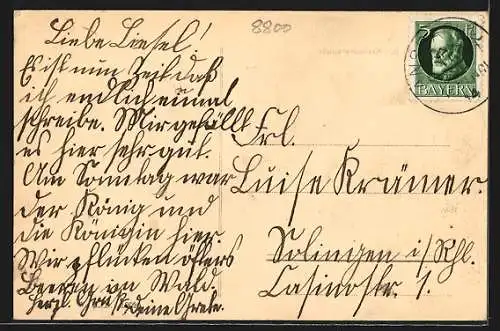 Liebe Liesel!
Es ist nun Zeit daß
ich endlich einmal
schreibe. Mir gefällt
es hier sehr gut.
Am Sonntag war
der König und
die Königin hier.
Wir pflücken öfters
Beeren im Wald.
Herzl. Gruß Deine Grete.
8800
5
BAYERN
Frl.
Luise Krämer.
Solingen i/Rhl.
Casinostr. 1.